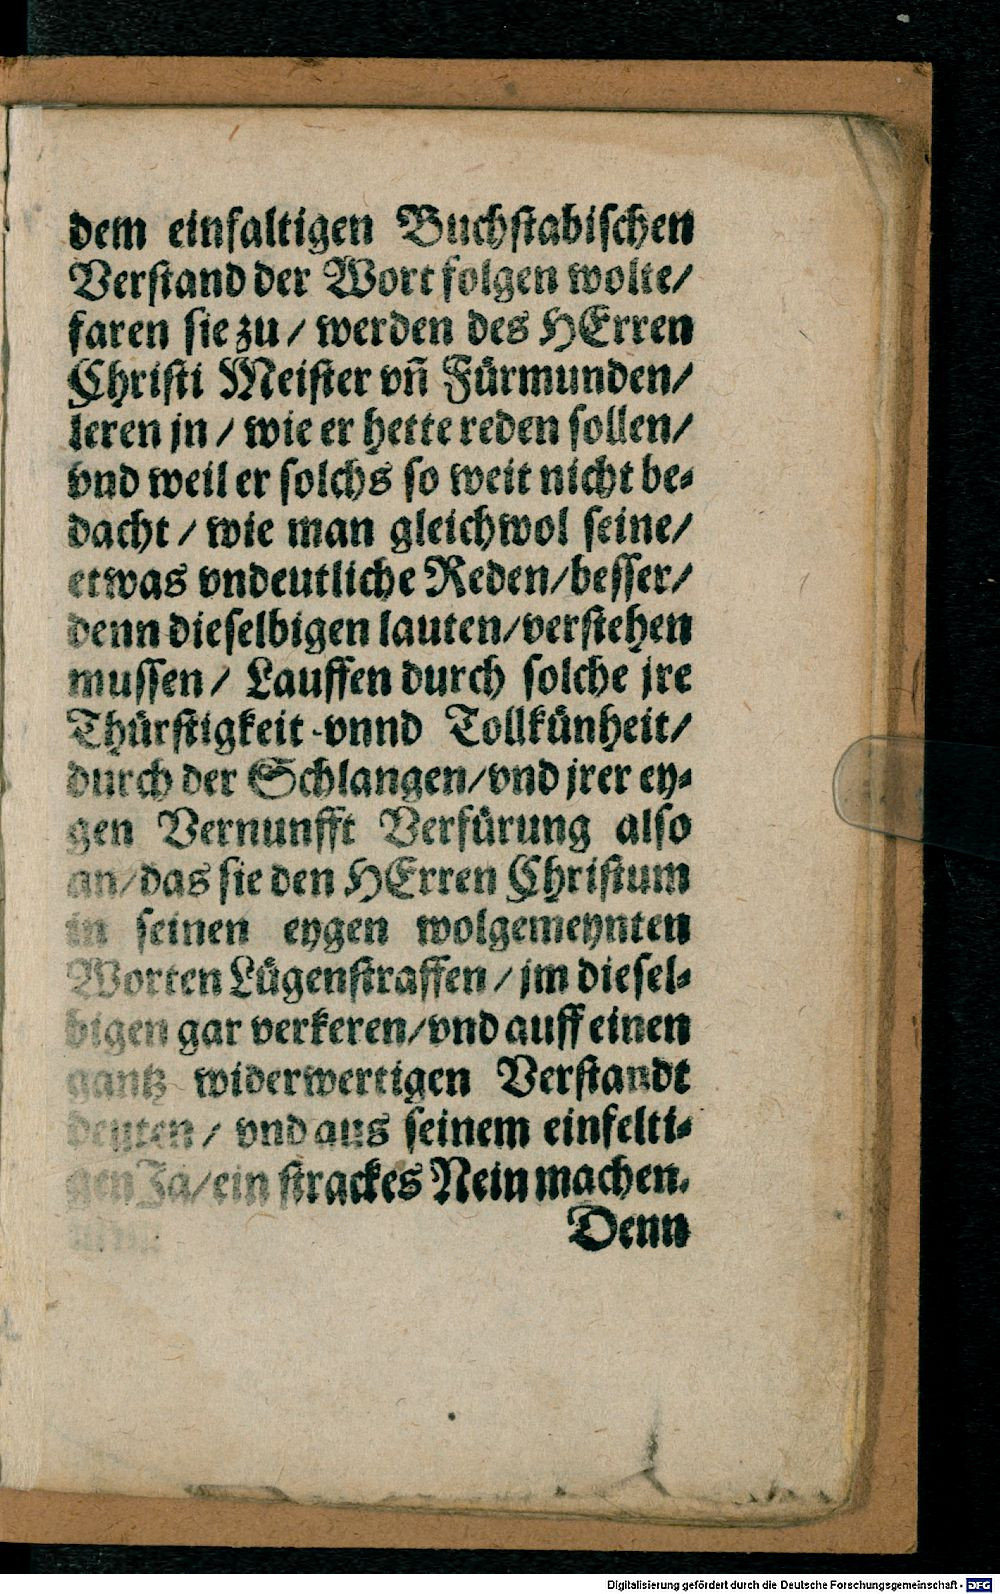 dem einfaltigen Buchstabischen
Verstand der Wort folgen wolte/
faren sie zu / werden des HErren
Christi Meister vñ Fürmunden/
leren jn / wie er hette reden sollen/
vnd weil er solchs so weit nicht be⸗
dacht / wie man gleichwol seine/
etwas vndeutliche Reden/besser/
denn dieselbigen lauten/verstehen
mussen / Lauffen durch solche jre
Thürstigkeit vnnd Tollkünheit/
durch der Schlangen/vnd jrer ey⸗
gen Vernunfft Verfürung also
an/das sie den HErren Christum
in seinen eygen wolgemeynten
Worten Lügenstraffen / jm diesel⸗
bigen gar verkeren/vnd auff einen
gantz widerwertigen Verstandt
deuten / vnd aus seinem einfelti⸗
gen Ja/ein strackes Nein machen.
Denn
Digitalisierung gefördert durch die Deutsche Forschungsgemeinschaft - DFG